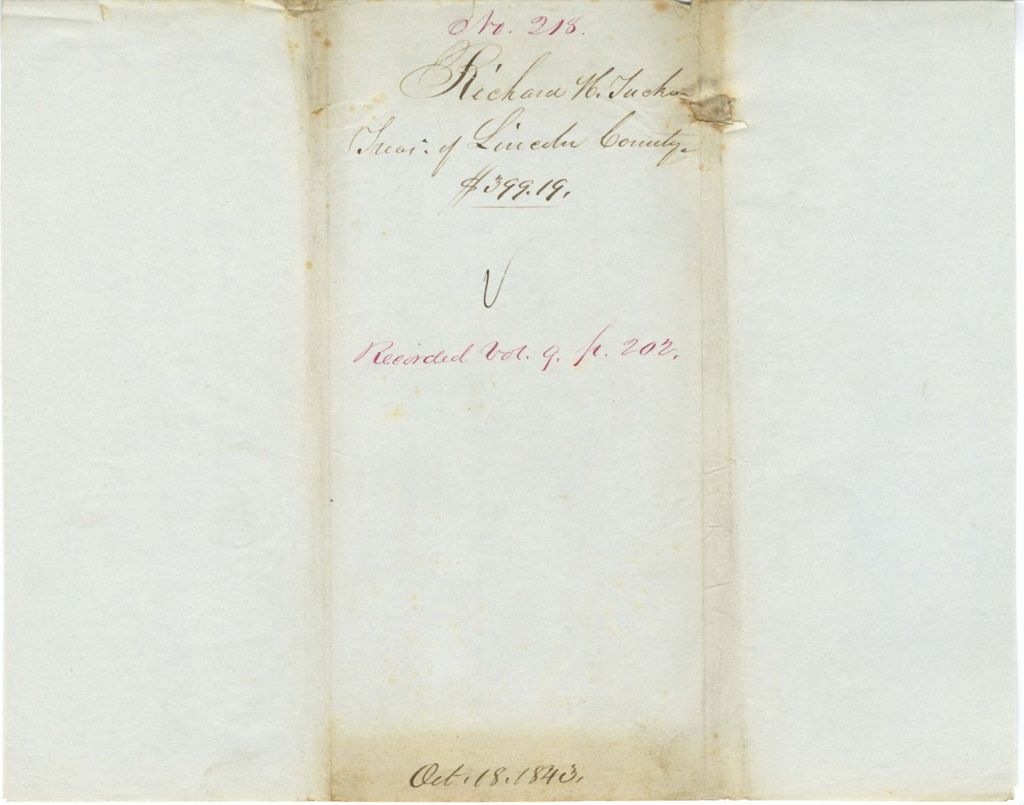 No. 218.
Richard H. Tucker
Treas. of Lincoln County.
$399.19.
Recorded Vol. 9. p. 202.
Oct. 18. 1843.